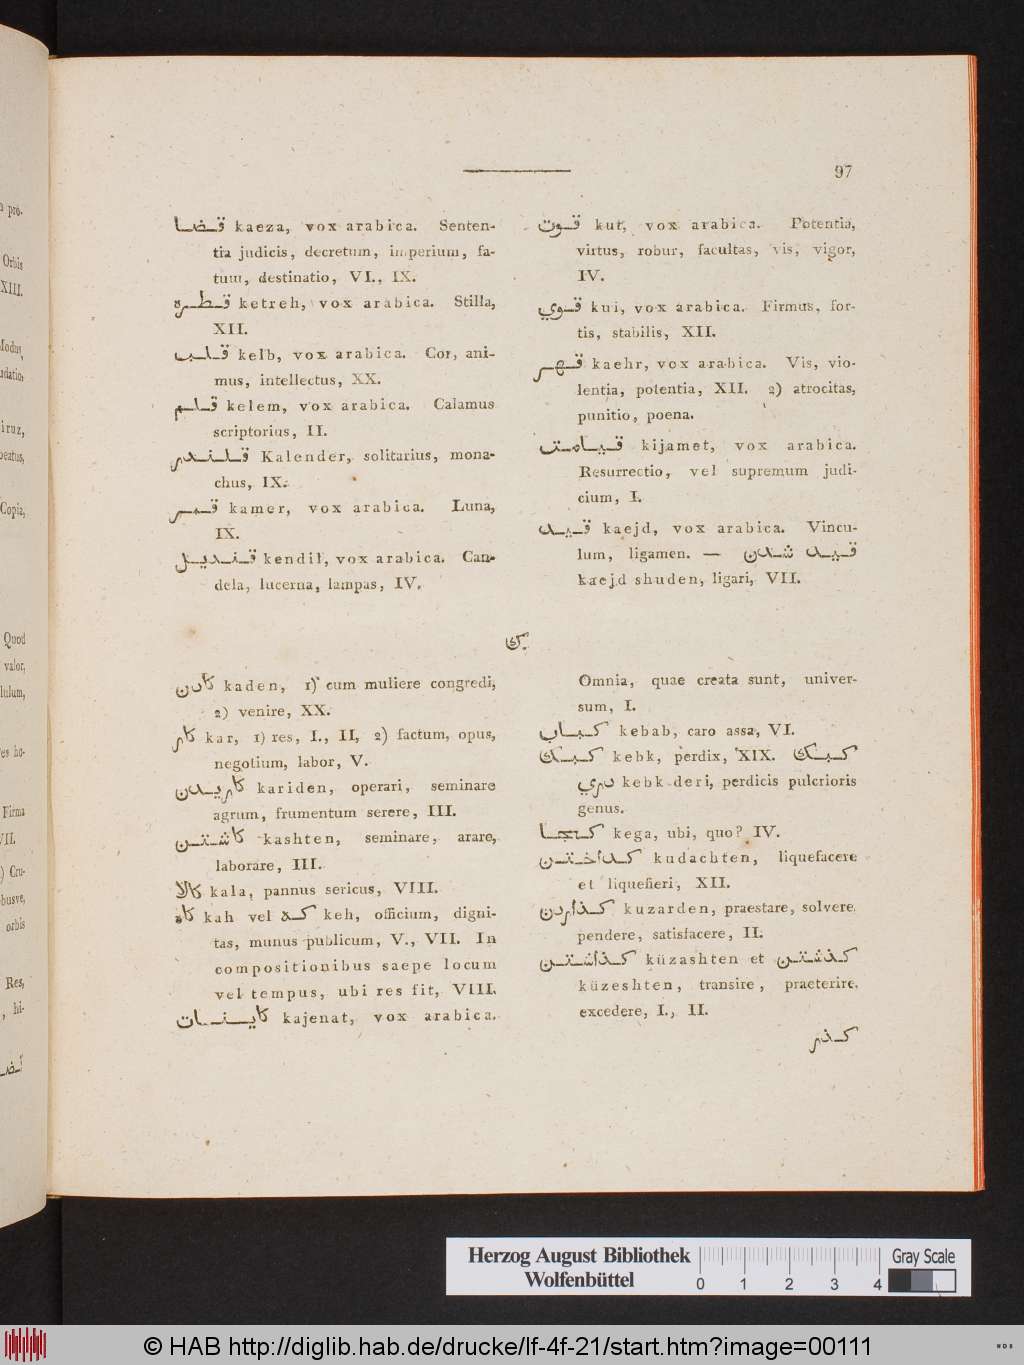 97
قضا kaeza, vox arabica. Senten-
tia judicis, decretum, imperium, fa-
tum, destinatio, VI., IX.
قطره ketreh, vox arabica. Stilla,
XII.
قلب kelb, vox arabica. Cor, ani-
mus, intellectus, XX.
قلم kelem, vox arabica. Calamus
scriptorius, II.
قلندر Kalender, solitarius, mona-
chus, IX.
قمر kamer, vox arabica. Luna,
IX.
قنديل kendil, vox arabica. Can-
dela, lucerna, lampas, IV.
قوت kut, vox arabica. Potentia,
virtus, robur, facultas, vis, vigor,
IV.
قوي kui, vox arabica. Firmus, for-
tis, stabilis, XII.
قهر kaehr, vox arabica. Vis, vio-
lentia, potentia, XII. 2) atrocitas,
punitio, poena.
قيامت kijamet, vox arabica.
Resurrectio, vel supremum judi-
cium, I.
قيد kaejd, vox arabica. Vincu-
lum, ligamen. — قيد شدن
kaejd shuden, ligari, VII.
ك
كادن kaden, 1) cum muliere congredi,
2) venire, XX.
كار kar, 1) res, I., II, 2) factum, opus,
negotium, labor, V.
كاريدن kariden, operari, seminare
agrum, frumentum serere, III.
كاشتن kashten, seminare, arare,
laborare, III.
كالا kala, pannus sericus, VIII.
كاه kah vel كه keh, officium, digni-
tas, munus publicum, V., VII. In
compositionibus saepe locum
vel tempus, ubi res fit, VIII.
كاينات kajenat, vox arabica.
Omnia, quae creata sunt, univer-
sum, I.
كباب kebab, caro assa, VI.
كبك kebk, perdix, XIX. كبك
دري kebk deri, perdicis pulcrioris
genus.
كجا kega, ubi, quo? IV.
كداختن kudachten, liquefacere
et liquefieri, XII.
كذاردن kuzarden, praestare, solvere,
pendere, satisfacere, II.
كذاشتن küzashten et كذشتن
küzeshten, transire, praeterire,
excedere, I., II.
كذر
Herzog August Bibliothek
Wolfenbüttel
0 1 2 3 4
Gray Scale
© HAB http://diglib.hab.de/drucke/lf-4f-21/start.htm?image=00111